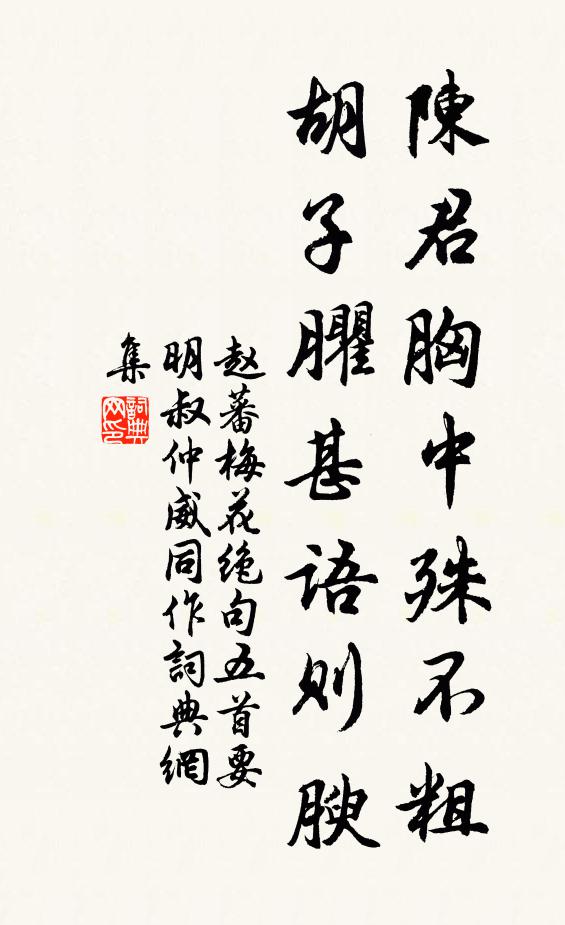 陳君胸中殊不粗
胡子臞甚語則腴
赵蕃梅花绝句五首要
明叔仲威同作詞典網
集
詞典
网印